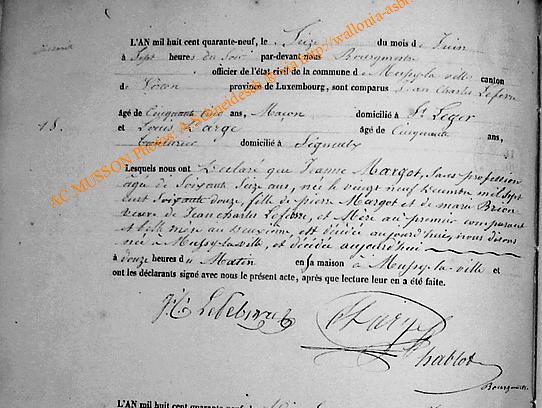 L'AN mil huit cent quarante-neuf, le Seize du mois de Juin
à Sept heures du Soir par-devant nous Bourgmestre
officier de l'état civil de la commune de Mussy la ville canton
de Virton province de Luxembourg, sont comparus Jean Charles Lefevre
âgé de Cinquante ans, Macon domicilié à St Leger
18.
et Louis Large âgé de Cinquante ans,
domicilié à Signeulx
Lesquels nous ont Déclaré que Jeanne Margot, Sans profession
âgée de Soixante Seize ans, née le vingt neuf Decembre mil Sept
cent Soixante douze, fille de pierre Margot et de marie Brion
veuve de Jean Charles Lefevre, et Mère au premier comparant
et belle mère au deuxième, est décédée aujourd'hui, nous disons
née à Mussy-la-ville, et décédée aujourd'hui
à douze heures du Matin en sa maison à Mussy-la-ville et
ont les déclarants signé avec nous le présent acte, après que lecture leur en a été faite.
Bourgmestre
L'AN mil huit cent quarante-neuf, le
AC MUSSON Photos A.Schneidesch
http://wallonia-asbl